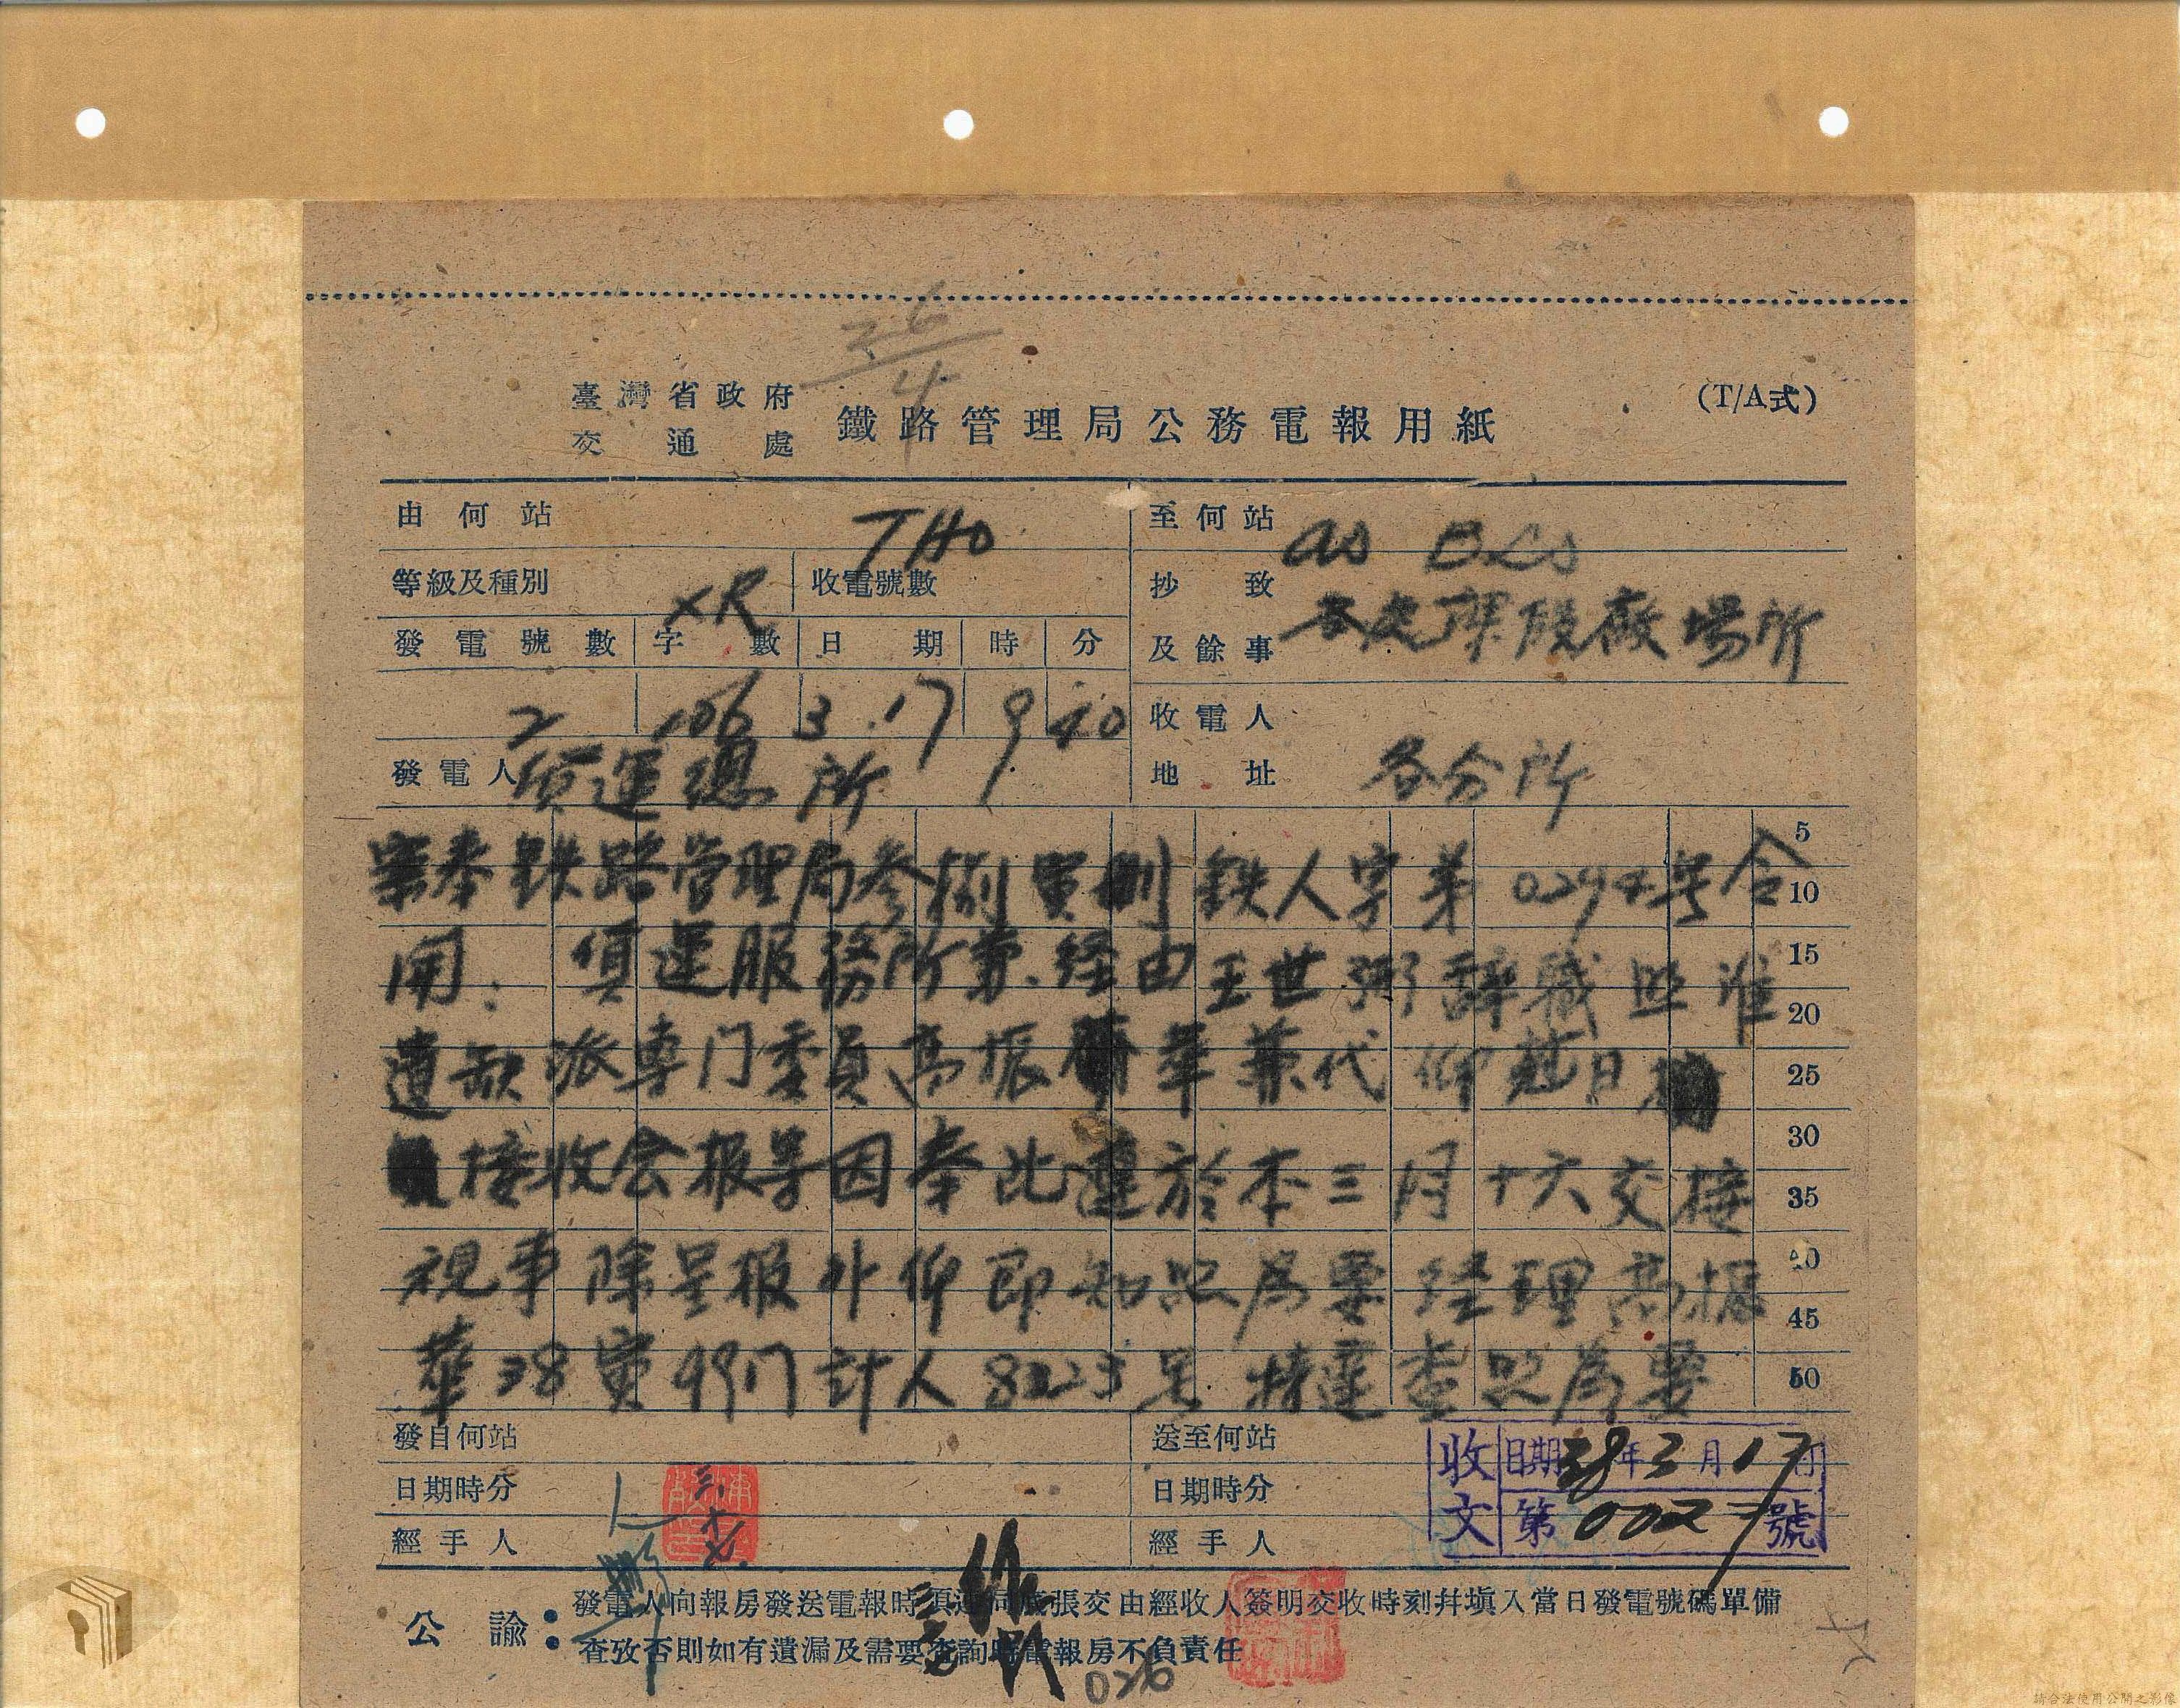 36/4
臺灣省政府
交通處
鐵路管理局公務電報用紙
(T/A式)
由何站 THO
至何站 as BLs
等級及種別 XR
收電號數
抄致
及餘事 各處課段廠場所
發電號數 字數 日期 時 分
2 106 3.17 9 40
收電人
地址 各分所
發電人 貨運總所
案奉鉄路管理局叁捌寅刪鉄人字第0294号令
開：貨運服務所兼经由王世弼辞職照准
遺缺派專门委員高振華兼代仰尅日
接收会报等因奉此遵於本三月十六交接
視事除呈报外仰即知照為要经理高振
華38寅 门計人8223号特達查照為要
5
10
15
20
25
30
35
40
45
50
發自何站
日期時分
經手人
送至何站
日期時分
經手人
收文 日期38年3月17日
第0027號
公諭：
發電人向報房發送電報時須連同底張交由經收人簽明交收時刻幷塡入當日發電號碼單備
查攷否則如有遺漏及需要查詢時電報房不負責任
026
請合法使用公開之影像